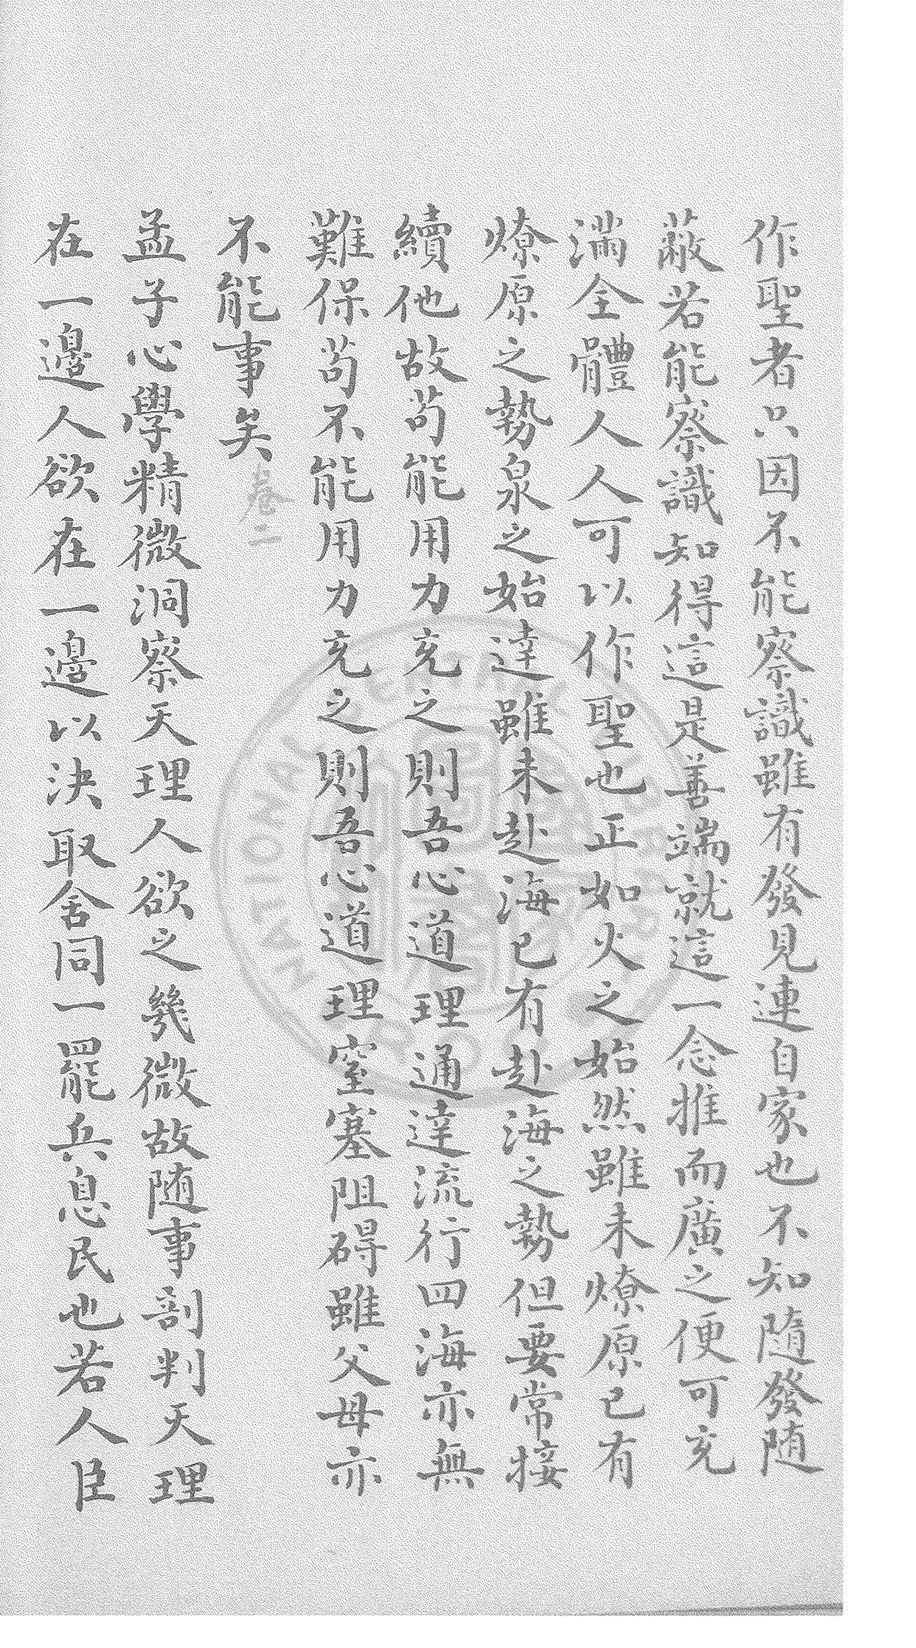 作聖者只因不能察識雖有發見連自家也不知隨發随
蔽若能察識知得這是善端就這一念推而廣之便可充
滿全體人人可以作聖也正如火之始然雖未燎原已有
燎原之勢泉之始達雖未赴海已有赴海之勢但要常接
續他故苟能用力充之則吾心道理通達流行四海亦無
難保苟不能用力充之則吾心道理窒塞阻碍雖父母亦
不能事矣
卷二
孟子心學精微洞察天理人欲之幾微故随事剖判天理
在一邊人欲在一邊以決取舍同一罷兵息民也若人臣
NATIONAL CENTRAL LIBRARY
R.O.C.
國家圖書館